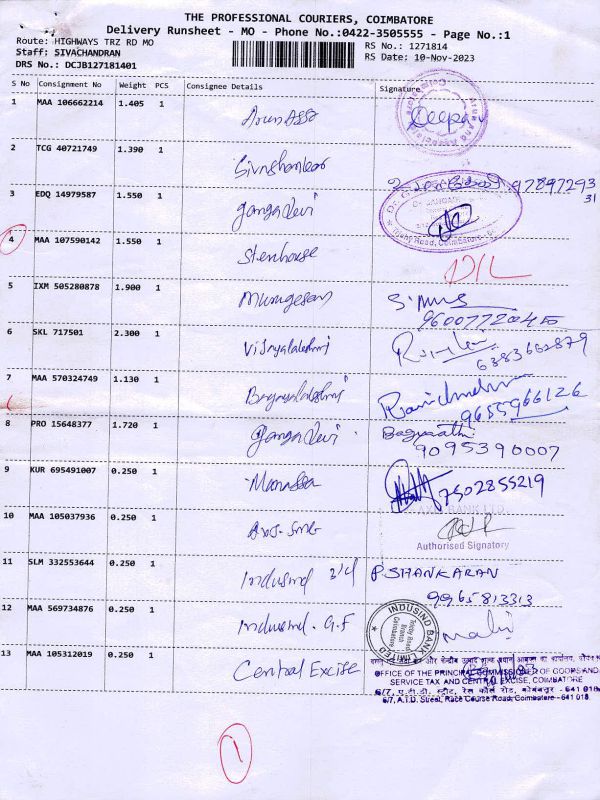 THE PROFESSIONAL COURIERS, COIMBATORE
Delivery Runsheet - MO - Phone No.:0422-3505555 - Page No.:1
Route: HIGHWAYS TRZ RD MO
Staff: SIVACHANDRAN
DRS No.: DCJB127181401
RS No.: 1271814
RS Date: 10-Nov-2023
S No Consignment No Weight PCS Consignee Details Signature
1 MAA 106662214 1.405 1 Deepa
2 TCG 40721749 1.390 1 Sivashankar 97897293
31
3 EDQ 14979587 1.550 1 Ganga Devi
Trichy Road, Coimbatore
4 MAA 107590142 1.550 1 Stenhouse
5 IXM 505280878 1.900 1 Murugesan
9600772204
6 SKL 717501 2.300 1 Vijayalakshmi
6383662879
7 MAA 570324749 1.130 1 Bagyalakshmi Ramchandran
9655966126
8 PRO 15648377 1.720 1 Ganga Devi Bagyathi
9095390007
9 KUR 695491007 0.250 1 Manassa 7502855219
10 MAA 105037936 0.250 1
BANK LTD.
Authorised Signatory
11 SLM 332553644 0.250 1 Indusind P. SHANKARAN
9965813313
12 MAA 569734876 0.250 1 Indusind. G.F
INDUSIND BANK LIMITED
Branch
Coimbatore
13 MAA 105312019 0.250 1 Central Excise
OFFICE OF THE PRINCIPAL COMMISSIONER OF GOODS AND
SERVICE TAX AND CENTRAL EXCISE, COIMBATORE
6/7, ए.टी.डी. स्ट्रीट, रेस कोर्स रोड, कोयंबत्तूर - 641 018
6/7, A.T.D. Street, Race Course Road, Coimbatore - 641 018
1